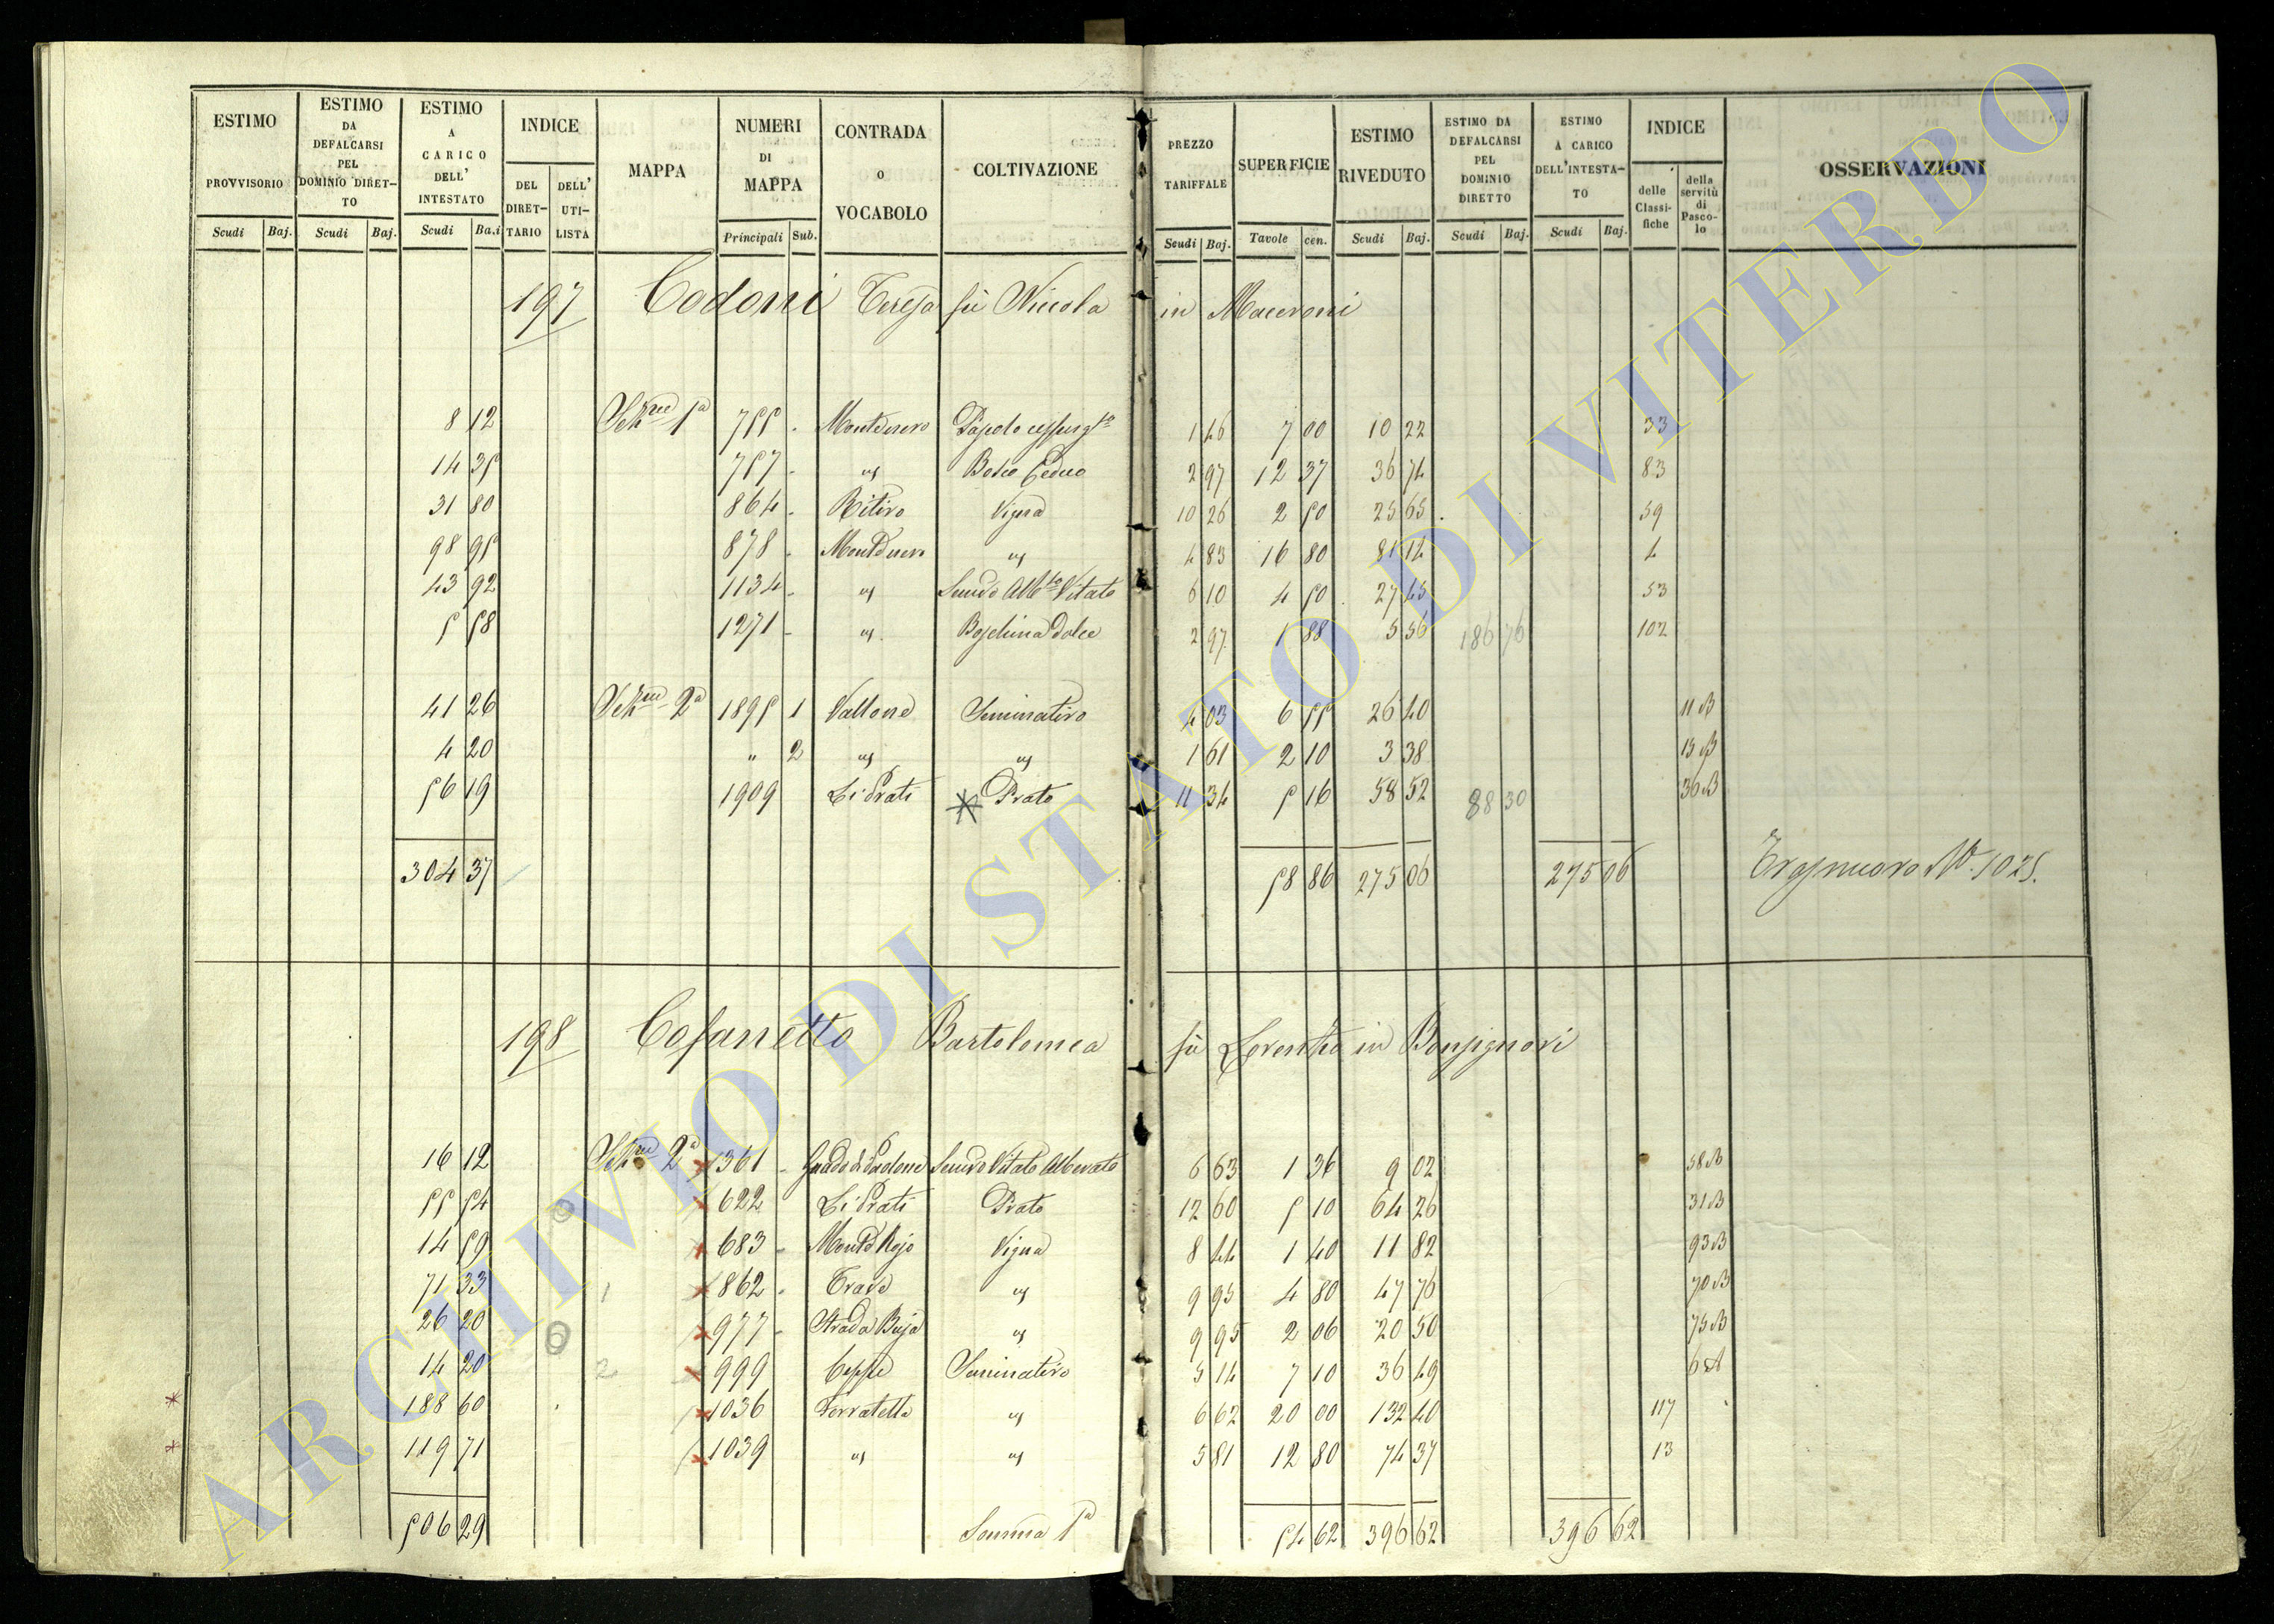 ESTIMO PROVVISORIO
ESTIMO DA DEFALCARSI PEL DOMINIO DIRET-TO
ESTIMO A CARICO DELL' INTESTATO
INDICE
DEL DIRET-TARIO
DELL' UTI-LISTA
MAPPA
NUMERI DI MAPPA
CONTRADA O VOCABOLO
COLTIVAZIONE
PREZZO TARIFFALE
SUPERFICIE
ESTIMO RIVEDUTO
ESTIMO DA DEFALCARSI PEL DOMINIO DIRETTO
ESTIMO A CARICO DELL'INTESTA-TO
INDICE
delle Classi-fiche
della servitù di Pasco-lo
OSSERVAZIONI
Scudi Baj. Scudi Baj. Scudi Ba.i Principali Sub. Scudi Baj. Tavole cen. Scudi Baj. Scudi Baj. Scudi Baj.
197 Codoni Teresa fù Niccola in Maceroni
8 12 1a 755 - Montenero 1 46 7 00 10 22 33
14 35 757 - " Bosco Ceduo 2 97 12 37 36 74 83
31 80 864 - Ritiro Vigna 10 26 2 50 25 65 59
98 95 878 - Montenero " 4 83 16 80 81 14 4
43 92 1134 - " Semivo Albto Vitato 6 10 4 50 27 45 53
5 58 1271 - " Boschina Dolce 2 97 1 88 5 56 186 76 102
41 26 2a 1895 1 Vallone Seminativo 4 03 6 55 26 40 11 B
4 20 " 2 " " 1 61 2 10 3 38 13 B
56 19 1909 Li Prati * Prato 11 34 5 16 58 52 88 30 30 B
304 37 58 86 275 06 275 06 Trasp nuovo No. 1025.
198 Cofanetto Bartolomea fù Lorenzo in Bonsignori
16 12 2a 361 - Guado di Padone Semivo Vitato Alberato 6 63 1 36 9 02 58 B
55 54 622 - Li Prati Prato 12 60 5 10 64 26 31 B
14 59 683 - Monte Rojo Vigna 8 44 1 40 11 82 93 B
71 33 1 862 - " 9 95 4 80 47 76 70 B
26 20 977 - Strada Buja " 9 95 2 06 20 50 75 B
14 20 2 999 Ceppe Seminativo 5 14 7 10 36 49 6 A
* 188 60 1036 Ferratella " 6 62 20 00 132 40 117
* 119 71 1039 " " 5 81 12 80 74 37 13
506 29 Somma Pa 54 62 396 62 396 62
ARCHIVIO DI STATO DI VITERBO